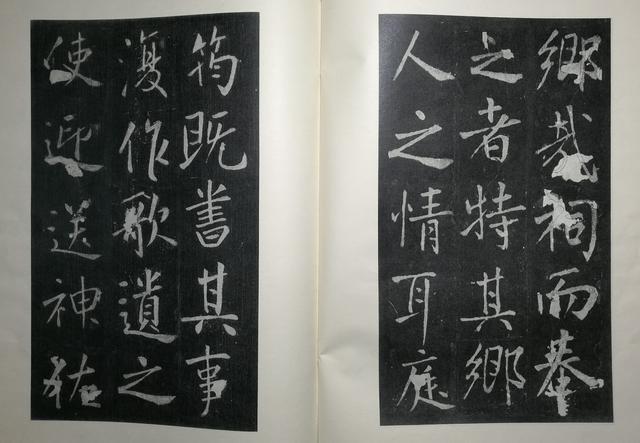 鄉哉祠而摹
之者特其鄉
人之情耳庭
筠既書其事
復作歌遺之
使迎送神祐